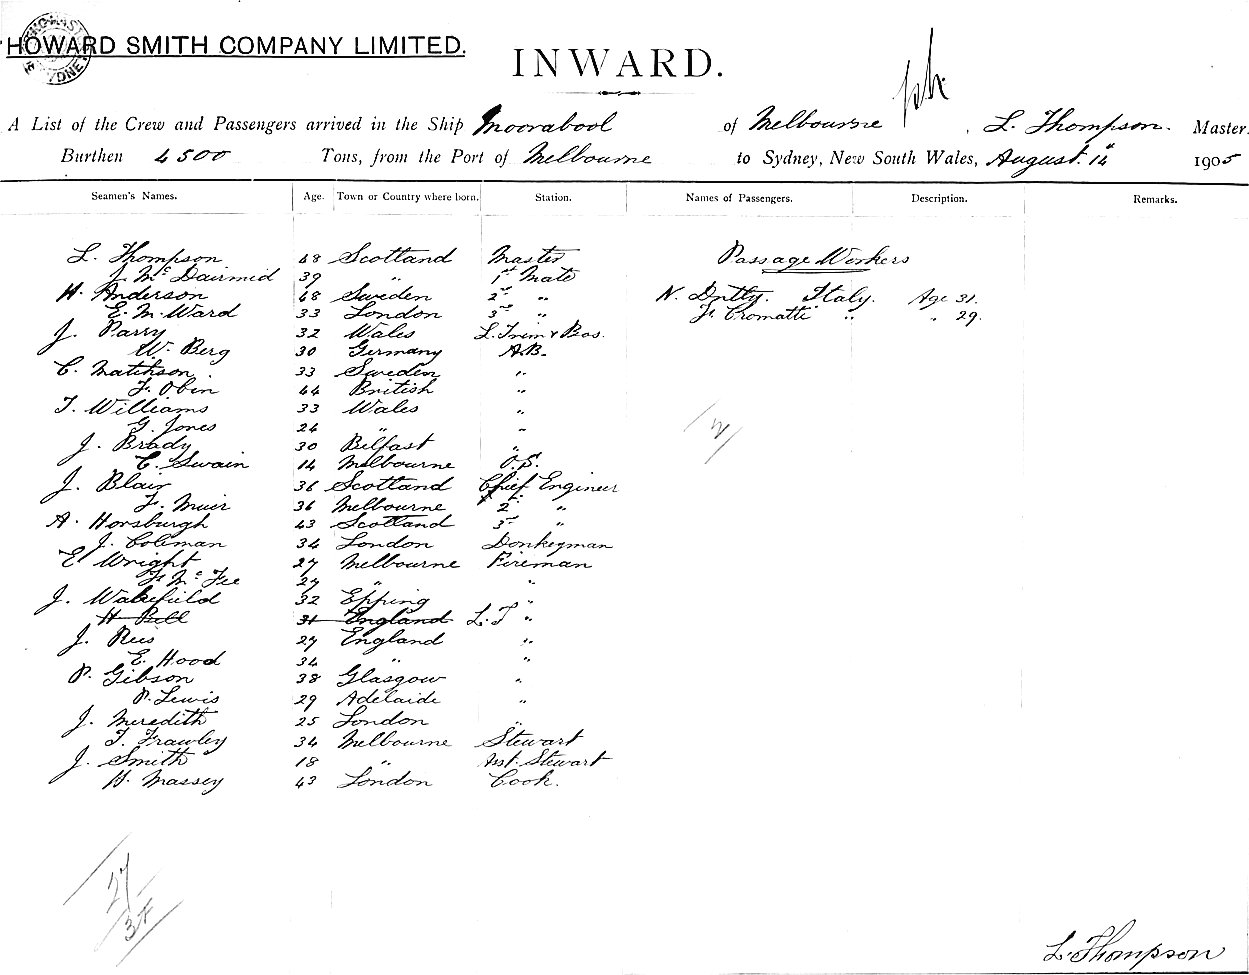 HOWARD SMITH COMPANY LIMITED.
INWARD.
A List of the Crew and Passengers arrived in the Ship Moorabool of Melbourne, L. Thompson. Master.
Burthen 4500 Tons, from the Port of Melbourne to Sydney, New South Wales, August 14 1905
Seamen's Names. Age. Town or Country where born. Station. Names of Passengers. Description. Remarks.
Passage Workers
L. Thompson 48 Scotland Master
J. McDairmid 39 " 1st Mate
H. Anderson 48 Sweden 2nd " N. Italy. Age 31.
E. M. Ward 33 London 3rd " F. Cromatti " " 29.
J. Parry 32 Wales L. Trim & Bos.
W. Berg 30 Germany A.B.
C. Matthson. 33 Sweden "
F. Obin 44 British "
T. Williams 33 Wales "
G. Jones 24 " "
J. Brady 30 Belfast "
C. Swain 14 Melbourne O.S.
J. Blair 36 Scotland Chief Engineer
F. Muir 36 Melbourne 2nd "
A. Horsburgh 43 Scotland 3rd "
J. Coleman 34 London Donkeyman
E. Wright 27 Melbourne Fireman
F. McFee 27 " "
J. Wakefield 32 Epping "
H Bell 31 England L.T "
J. Reis 27 England "
E. Hood 34 " "
P. Gibson 38 Glasgow "
P. Lewis 29 Adelaide "
J. Meredith 25 London "
T. Frawley 34 Melbourne Stewart
J. Smith 18 " Asst. Stewart
H. Massey 43 London Cook.
2
27
L. Thompson